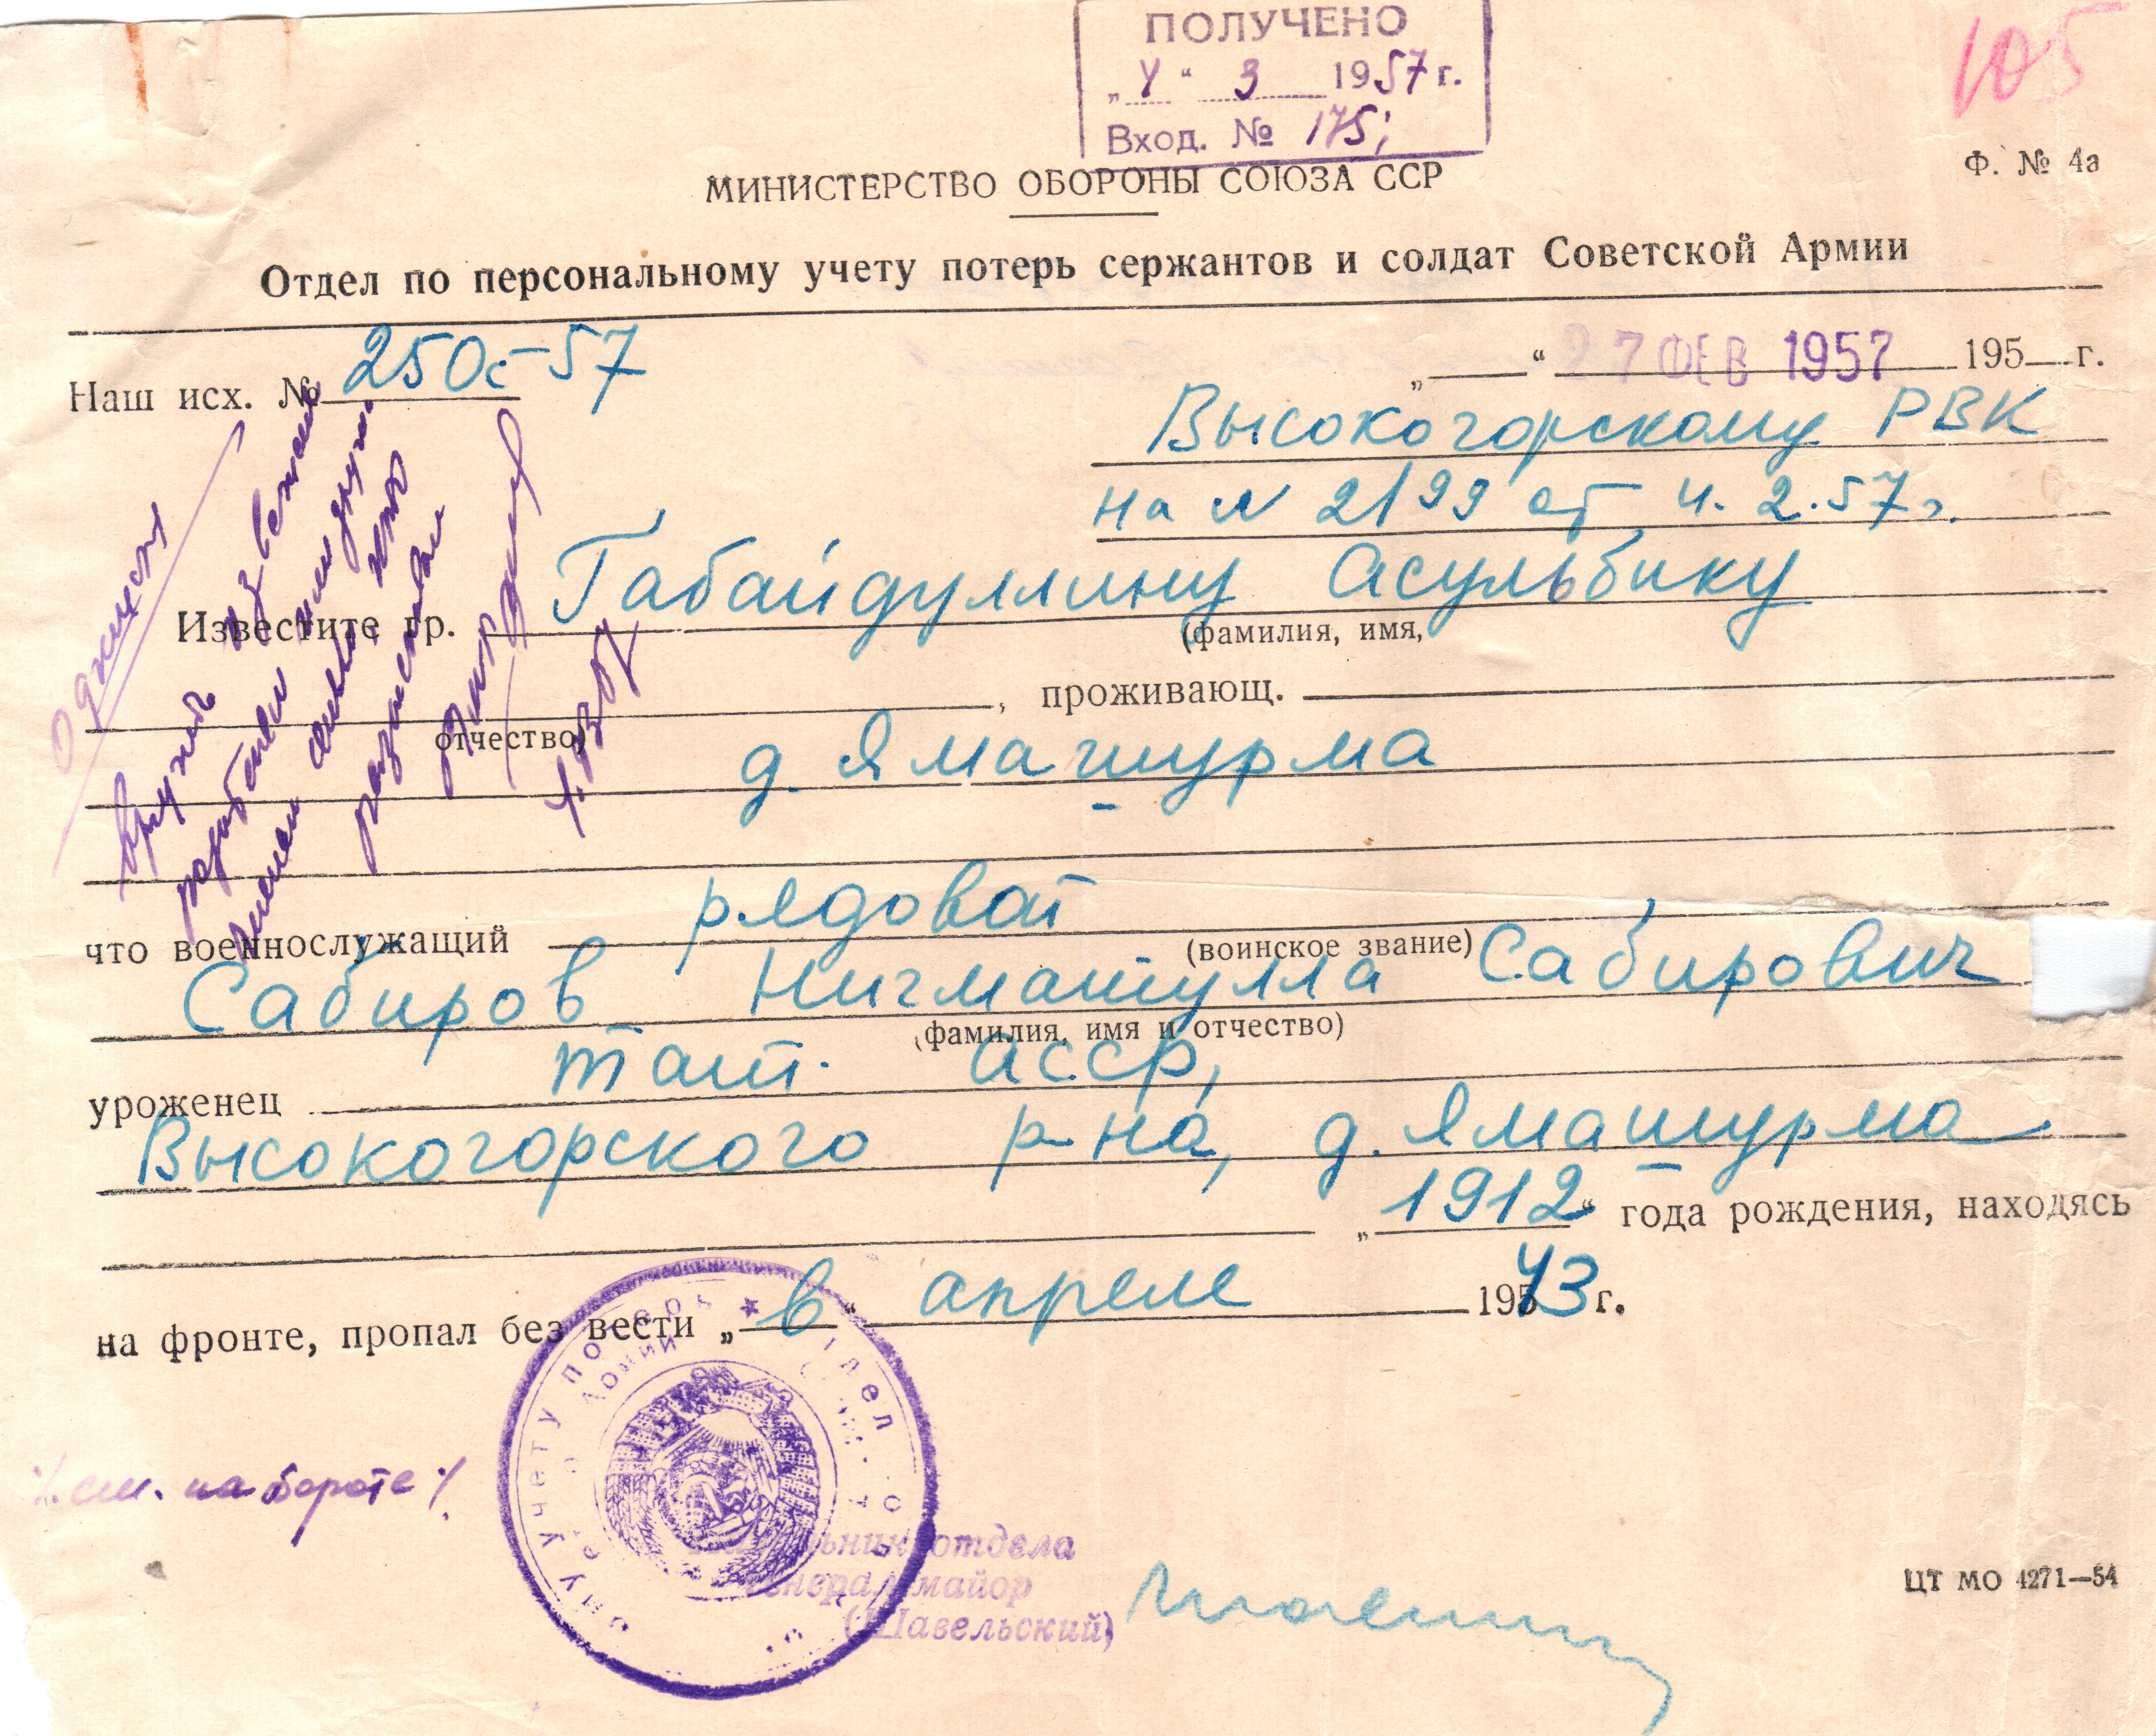 ПОЛУЧЕНО
„4“ 3 1957 г.
Вход. № 175
105
МИНИСТЕРСТВО ОБОРОНЫ СОЮЗА ССР
Ф. № 4а
Отдел по персональному учету потерь сержантов и солдат Советской Армии
Наш исх. № 250с-57
„ “ 27 ФЕВ 1957 195 г.
Высокогорскому РВК
на № 2199 от 4.2.57г.
Известите гр. Габайдуллину Асульбику
(фамилия, имя,
, проживающ.
отчество)
д. Ямашурма
что военнослужащий рядовой
(воинское звание)
Сабиров Нигматулла Сабирович
(фамилия, имя и отчество)
уроженец Тат. АССР,
Высокогорского р-на, д. Ямашурма
„1912“ года рождения, находясь
на фронте, пропал без вести „в“ апреле 19543 г.
см. на обороте
Начальник отдела
генерал-майор
(Шавельский)
ЦТ МО 4271—54